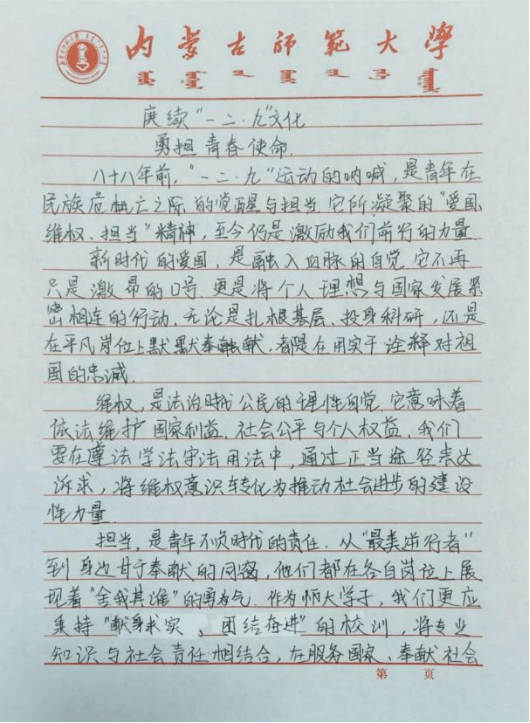 内蒙古师范大学
赓续“一二·九”文化
勇担青春使命.
八十八年前,“一二·九”运动的呐喊,是青年在
民族危亡之际的觉醒与担当.它所凝聚的“爱国、
维权、担当”精神,至今仍是激励我们前行的力量
新时代的爱国,是融入血脉的自觉.它不再
只是激昂的口号.更是将个人理想与国家发展紧
密相连的行动.无论是扎根基层、投身科研,还是
在平凡岗位上默默奉献.都是在用实干诠释对祖
国的忠诚.
维权,是法治时代公民的理性自觉.它意味着
依法维护国家利益、社会公平与个人权益.我们
要在遵法学法守法用法中,通过正当途径表达
诉求,将维权意识转化为推动社会进步的建设
性力量.
担当,是青年不负时代的责任.从“最美逆行者”
到身边甘于奉献的同学,他们都在各自岗位上展
现着“舍我其谁”的勇气.作为师大学子,我们更应
秉持“献身求实、团结奋进”的校训,将专业
知识与社会责任相结合,在服务国家、奉献社会
第 页